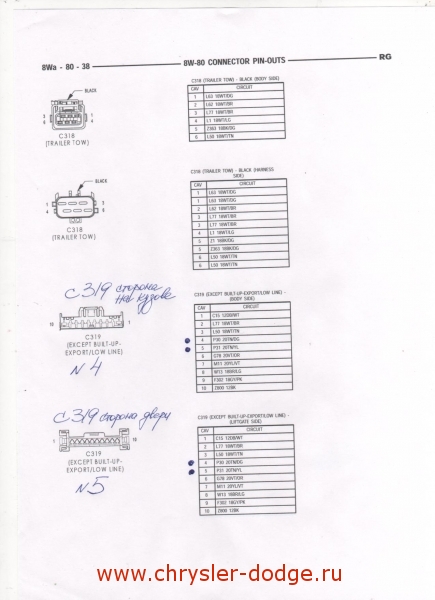 8Wa - 80 - 38
8W-80 CONNECTOR PIN-OUTS
RG
BLACK
C318
(TRAILER TOW)
C318 (TRAILER TOW) - BLACK (BODY SIDE)
CAV CIRCUIT
1 L63 18WT/DG
2 L62 18WT/BR
3 L77 18WT/BR
4 L1 18WT/LG
5 Z363 18BK/DG
6 L50 18WT/TN
BLACK
C318
(TRAILER TOW)
C318 (TRAILER TOW) - BLACK (HARNESS
SIDE)
CAV CIRCUIT
1 L63 18WT/DG
1 L63 18WT/DG
2 L62 18WT/BR
3 L77 18WT/BR
3 L77 18WT/BR
4 L1 18WT/LG
5 Z1 18BK/DG
5 Z363 18BK/DG
6 L50 18WT/TN
6 L50 18WT/TN
C319 сторона
на кузове
10
1
C319
(EXCEPT BUILT-UP-
EXPORT/LOW LINE)
N 4
C319 (EXCEPT BUILT-UP-EXPORT/LOW LINE) -
(BODY SIDE)
CAV CIRCUIT
1 C15 12DB/WT
2 L77 18WT/BR
3 L50 18WT/TN
4 P30 20TN/DG
5 P31 20TN/YL
6 G78 20VT/OR
7 M11 20YL/VT
8 W13 18BR/LG
9 F302 18GY/PK
10 Z800 12BK
C319 сторона двери
1
10
C319
(EXCEPT BUILT-UP-
EXPORT/LOW LINE)
N 5
C319 (EXCEPT BUILT-UP-EXPORT/LOW LINE) -
(LIFTGATE SIDE)
CAV CIRCUIT
1 C15 12DB/WT
2 L77 18WT/BR
3 L50 18WT/TN
4 P30 20TN/DG
5 P31 20TN/YL
6 G78 20VT/OR
7 M11 20YL/VT
8 W13 18BR/LG
9 F302 18GY/PK
10 Z800 12BK
www.chrysler-dodge.ru